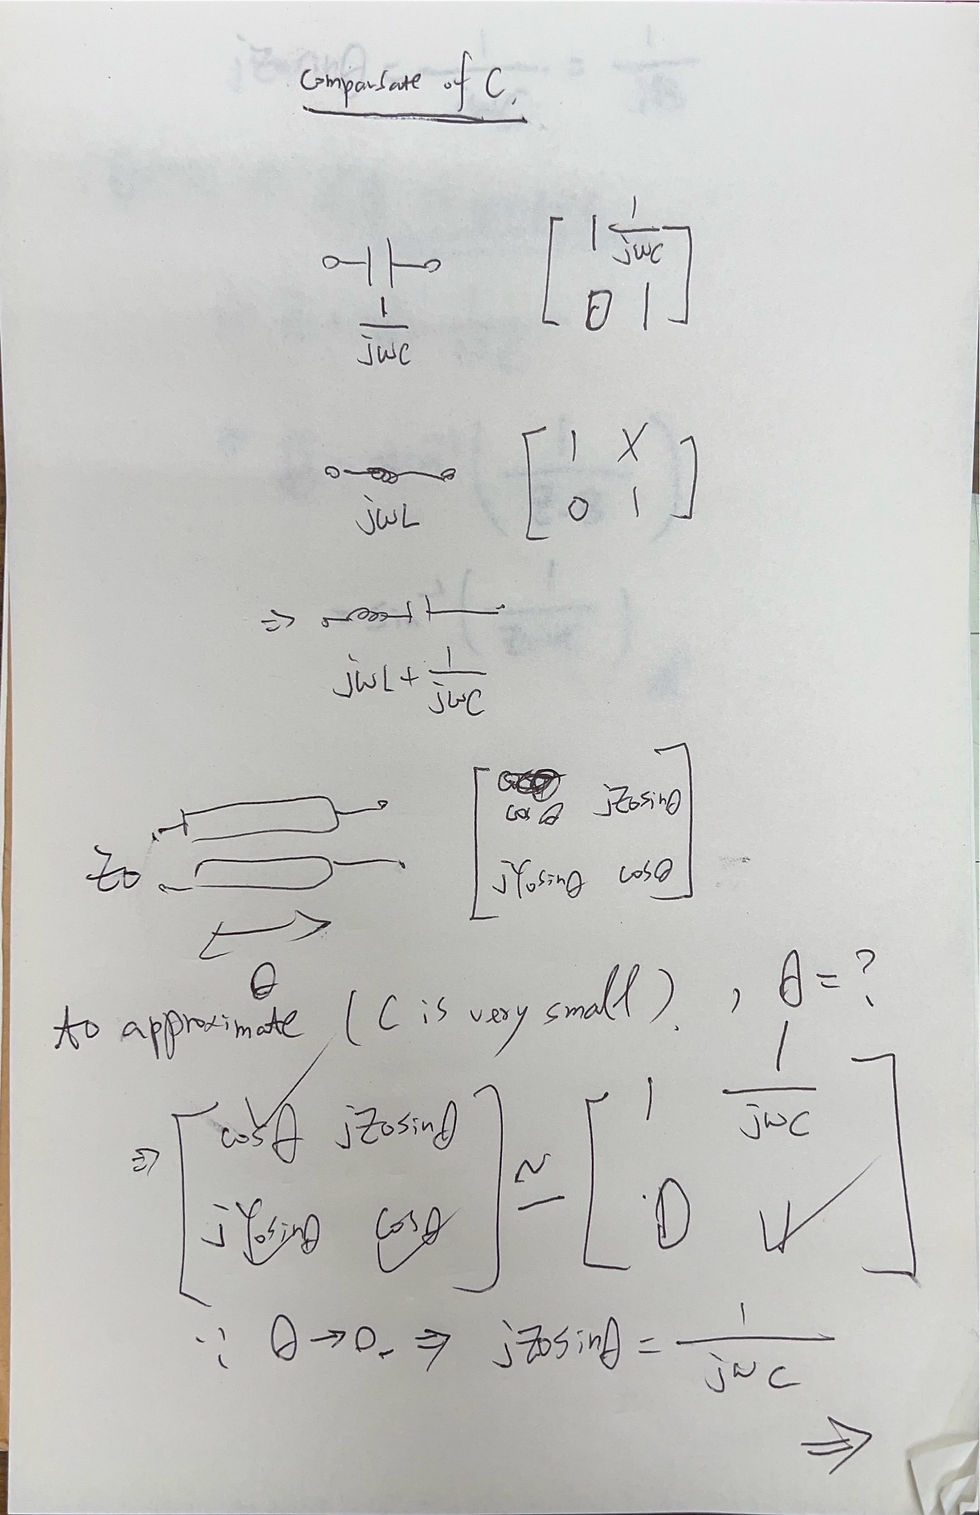 Compansate of C.
[ 1 1/jωC
0 1 ]
1/jωC
[ 1 X
0 1 ]
jωL
⇒
jωL + 1/jωC
[ cosθ jZ0sinθ
jY0sinθ cosθ ]
Z0
θ
to approximate (C is very small). , θ = ?
⇒ [ cosθ jZ0sinθ
jY0sinθ cosθ ] ≃ [ 1 1/jωC
0 1 ]
∵ θ → 0. ⇒ jZ0sinθ = 1/jωC
⇒